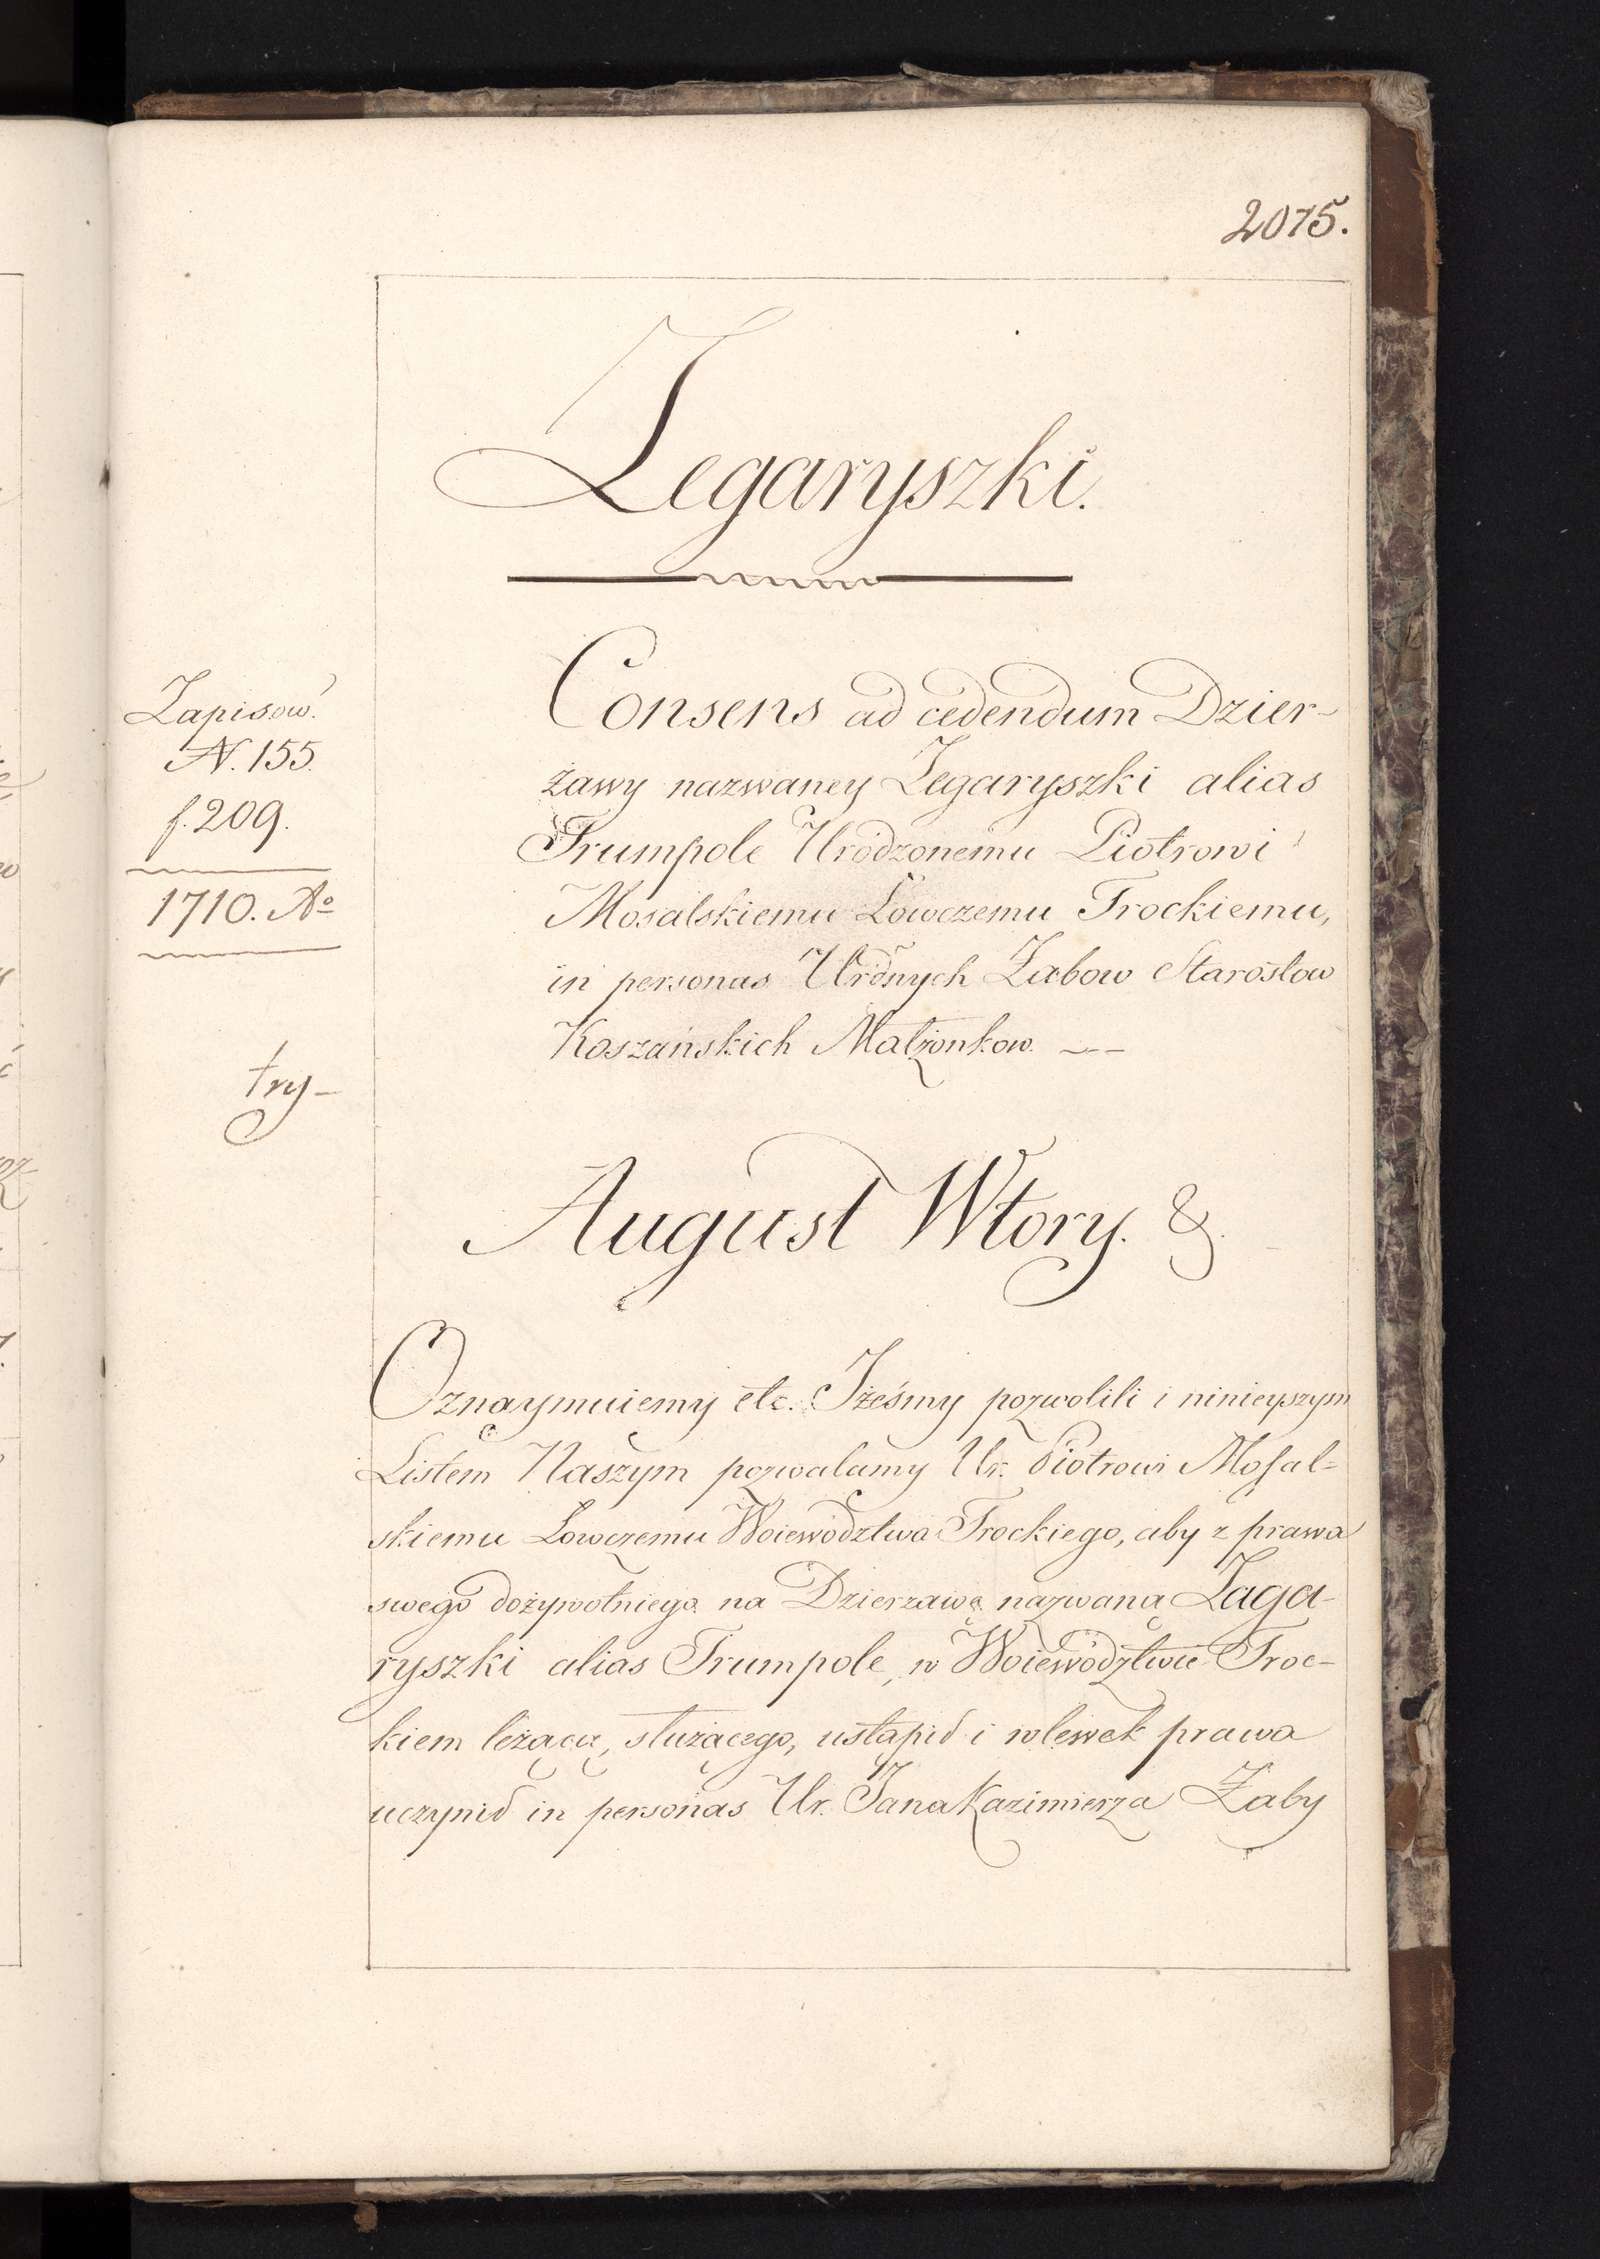 2075.
Zegaryszki.
Zapisow.
N. 155.
f. 209.
1710. Aº
try-
Consens ad cedendum Dzier-
żawy nazwaney Zegaryszki alias
Trumpole Urodzonemu Piotrowi
Mosalskiemu Łowczemu Trockiemu,
in personas Urdnych Żabow Starostow
Koszańskich Małżonkow. —
August Wtory. &.
Oznaymuiemy etc. Iżeśmy pozwolili i ninieyszym
Listem Naszym pozwalamy Ur. Piotrowi Mosal=
skiemu Łowczemu Woiewództwa Trockiego, aby z prawa
swego dożywotniego na Dzierżawę nazwaną Zaga-
ryszki alias Trumpole, w Woiewództwie Troc-
kiem leżącą, służącego, ustąpić i wlewek prawa
uczynić in personas Ur. Jana Kazimierza Żaby